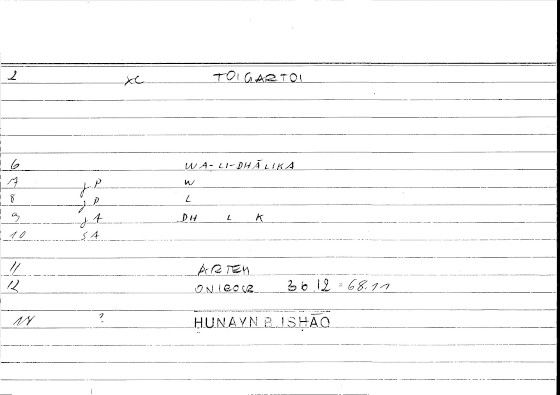 2 XC TOIGARTOI
6 WA-LI-DHĀLIKA
7 jP W
8 jP L
9 jA DH L K
10 SA
11 ARTEM
12 36,12 = 68.11
14 ? HUNAYN B. ISHĀQ